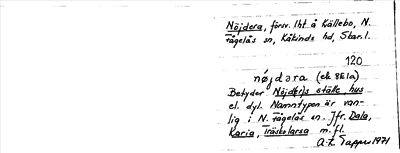 Nöjdera, försv. lht å Källebo, N.
Fågelås sn, Kåkinds hd, Skar. l.
120
nøjdəra (ek 8E1a)
Betyder Nöjd(e)s ställe hus
el. dyl. Namntypen är van-
lig i N. Fågelås sn. Jfr. Dala,
Karia, Träskolarsa m. fl.
1971